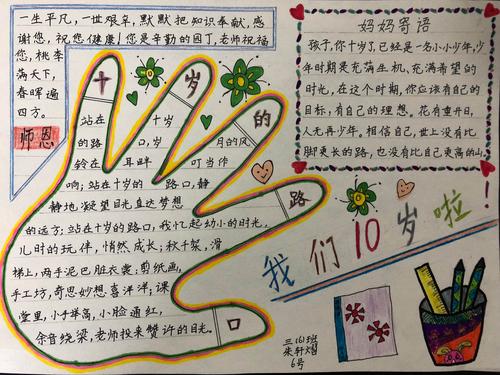 一生平凡，一世艰辛，默默把知识奉献，感
谢您，祝您健康！您是辛勤的园丁，老师祝福
您，桃李
满天下，
春晖遍
四方。
师恩
妈妈寄语
孩子，你十岁了，已经是一名小小少年，少
年时期是充满生机，充满希望的
时光，在这个时期，你应该有自己的
目标，有自己的理想。花有重开日，
人无再少年。相信自己，世上没有比
脚更长的路，也没有比自己更高的山
！
十岁的路口
站在 十岁 的路 口，岁 月的风
铃在 耳畔 叮当作
响；站在十岁的 路口，静
静地，凝望目光直达梦想
的远方；站在十岁的路口，我忆起幼小的时光，
儿时的玩伴，悄然成长；秋千架，滑
梯上，两手泥巴脏衣裳；剪纸画，
手工坊，奇思妙想喜洋洋；课
堂里，小手举高，小脸通红，
余音绕梁，老师投来赞许的目光。
我们10岁啦！
三(6)班
朱轩
6号